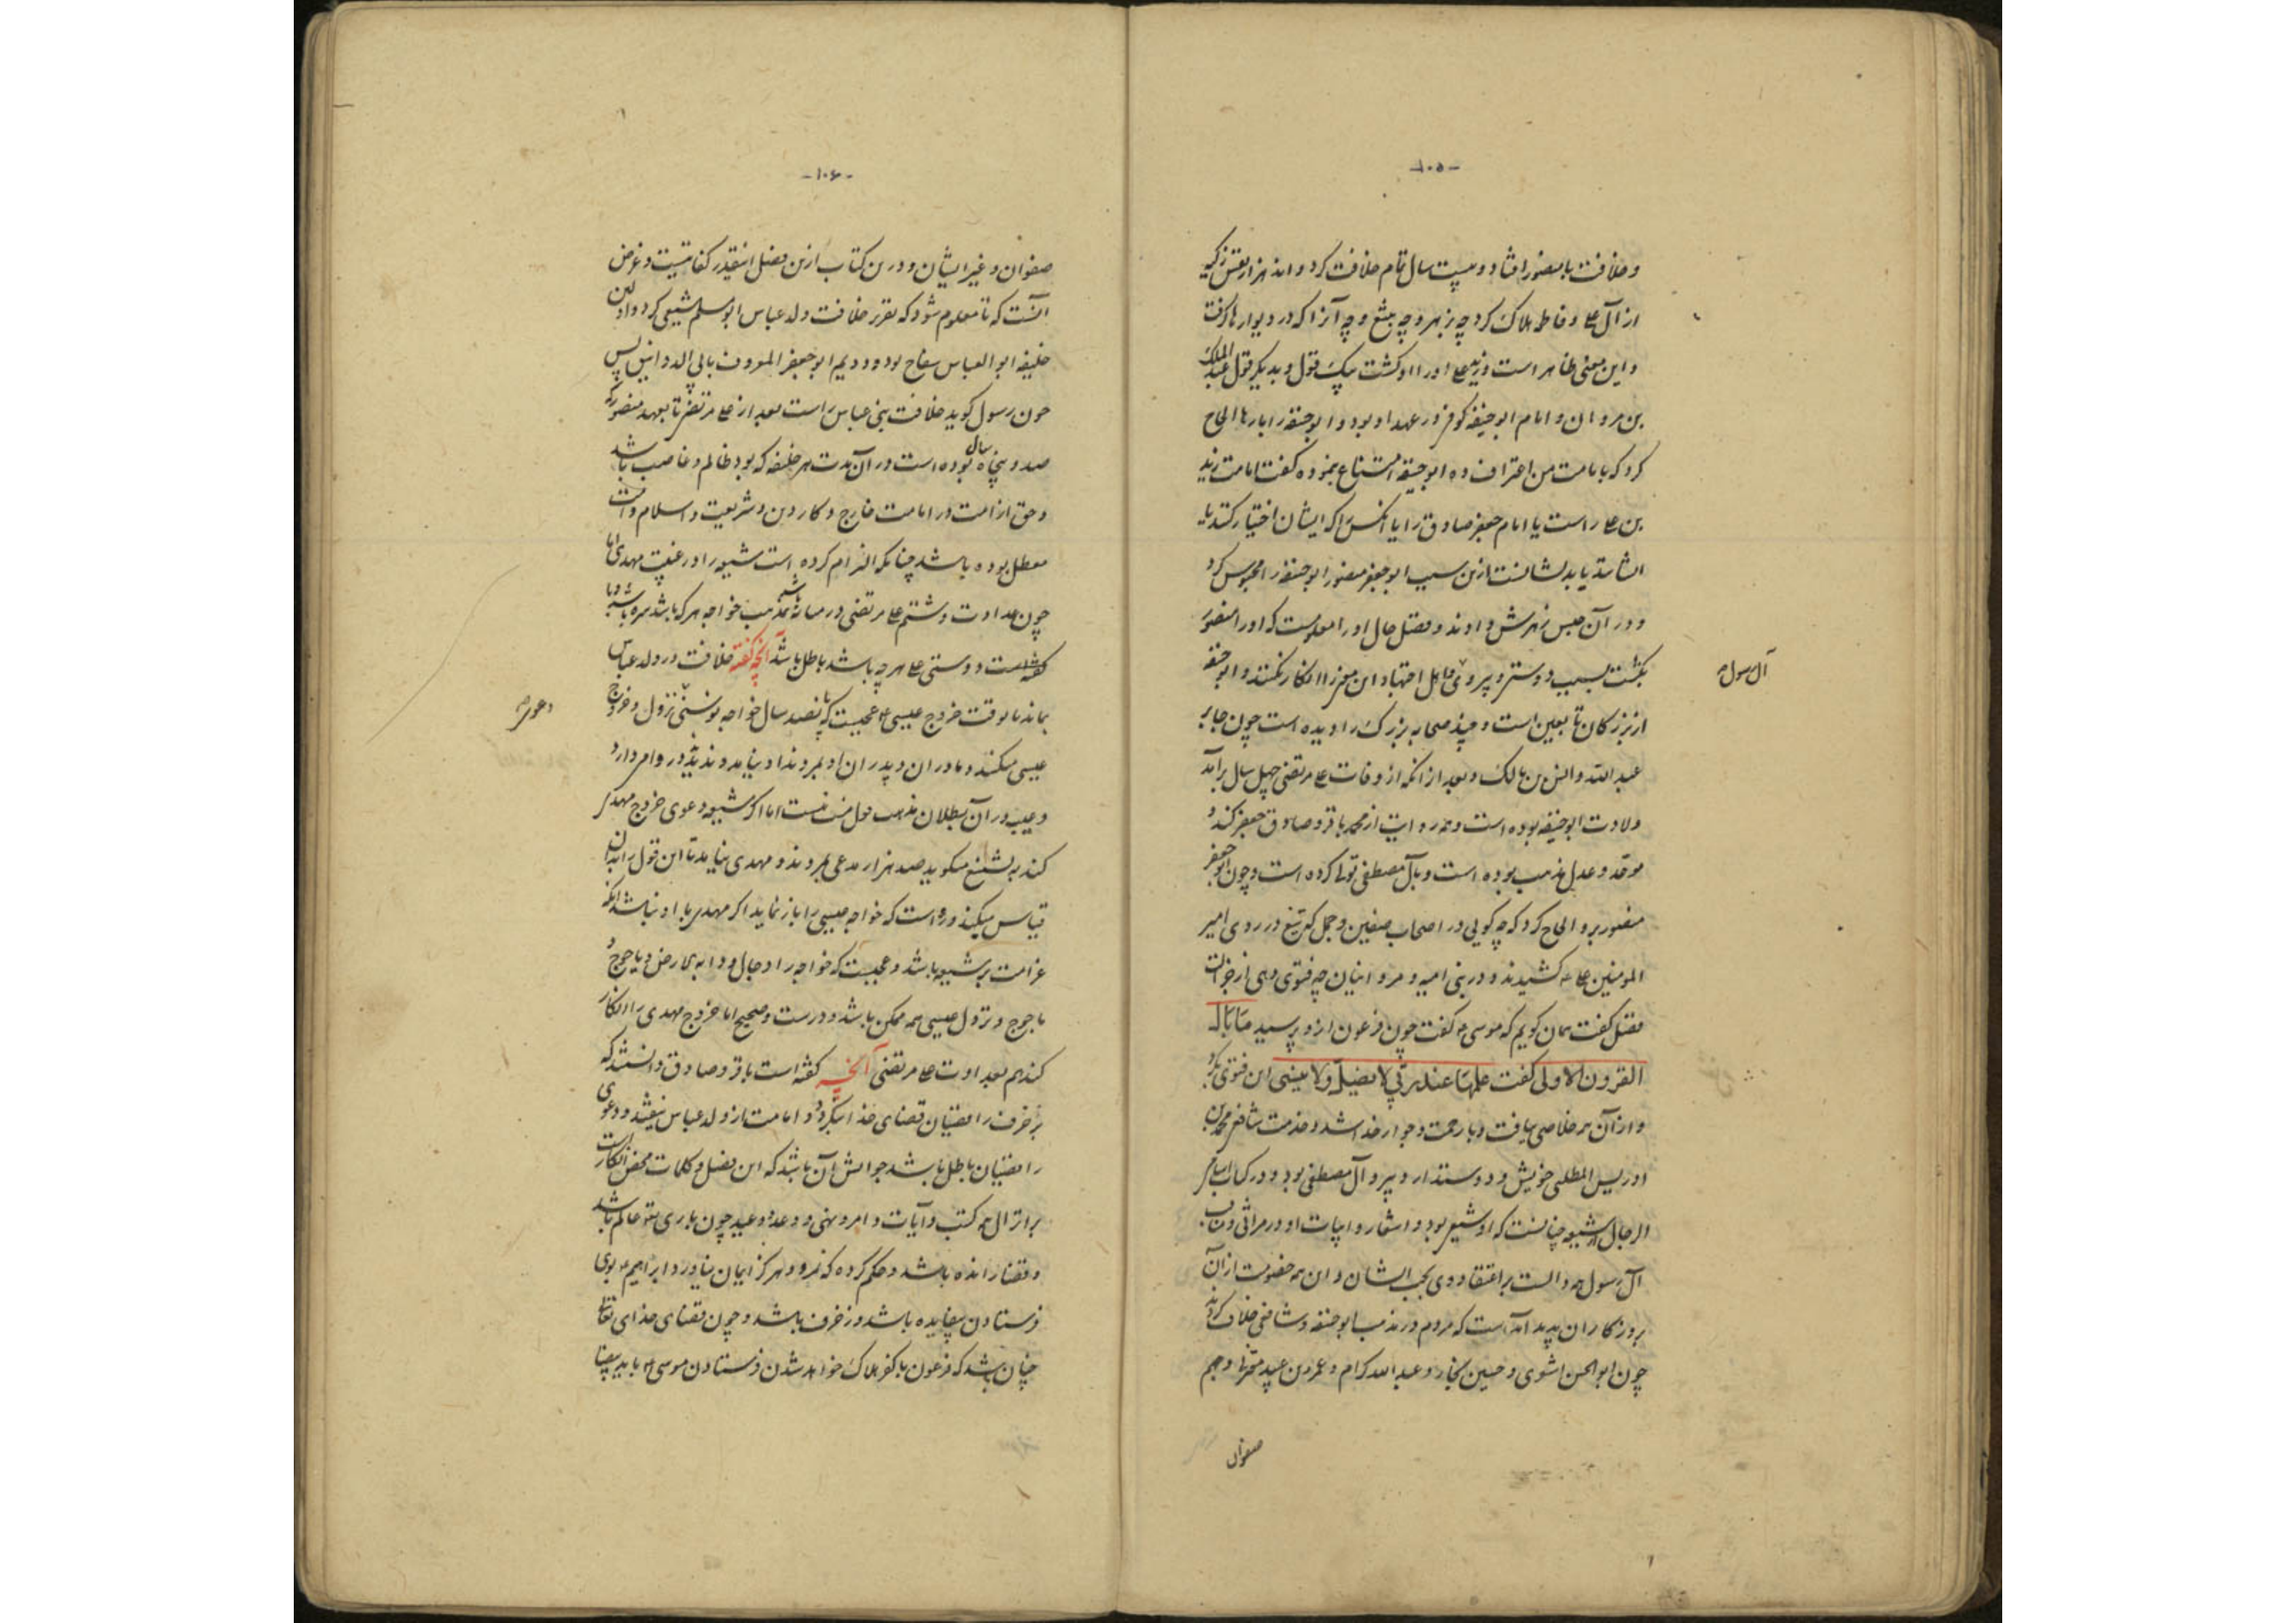 -۱۰۵-
و خلافت با منصور افتاد و بیست سال تمام خلافت کرد و اند هزار نفس زکیه
از آل علی و فاطمه هلاک کرد چه بزهر و چه بتیغ و چه آنرا که در دیوارها گرفت
و این معنی ظاهر است و زید علی را او کشت بیک قول و بدیگر قول عبدالملک
بن مروان و امام ابوحنیفه کوفی در عهد او بود و ابوحنیفه را بارها الحاح
کرد که بامامت من اعتراف ده ابوحنیفه امتناع نموده گفت امامت زید
بن علی راست یا امام جعفر صادق را یا آنکس را که ایشان اختیار کنند یا
اشاشت ازین سبب ابوجعفر منصور ابوحنیفه را محبوس کرد
و در آن حبس زهرش دادند و فضل حال او را معلومست که او را منصور
بکشت بسبب دوستی و پیروی و اهل اجتهاد این معنی را انکار نکنند و ابوحنیفه
آل رسول
از بزرگان تابعین است و چند صحابه بزرگ را دیده است چون جابر
عبدالله و انس بن مالک و بعد از آنکه از وفات علی مرتضی چهل سال برآمد
ولادت ابوحنیفه بوده است و همه روایت از محمد باقر و صادق جعفر کند و
موحد و عدل مذهب بوده است و بآل مصطفی تولا کرده است و چون ابوجعفر
منصور برو الحاح کرد که چه گویی در اصحاب صفین و جمل که تیغ در روی امیر
المومنین علی کشیدند و در بنی امیه و مروانیان چه فتوی دهی از
فضل گفت همان گویم که موسی گفت چون فرعون ازو پرسید مَا بَالُ
القرون الاولی گفت علمها عند ربی لا یضل ولا ینسی این فتوی بکرد
و از آن همه خلاصی یافت و با رحمت و جوار خدا شد و خدمت شافعی محمد بن
ادریس المطلبی خویش و دوستدار و پیرو آل مصطفی بود و در کتاب اسامی
الرجال شیعه چنانست که او شیعی بود و اشعار و ابیات او در مراثی و مناقب
آل رسول همه دالست بر اعتقاد وی بحب ایشان و این همه خصومت از آن
بروزگاران پدید آمده است که مردم در مذهب ابوحنیفه و شافعی خلاف کردند
چون ابوالحسن اشعری و حسین نجار و عبدالله کرام و عمرو بن عبید معتزلی و جهم
صفوان
-۱۰۶-
صفوان و غیر ایشان و درین کتاب ازین فصل اینقدر کفایتست و غرض
آنست که تا معلوم شود که تقریر خلافت ولد عباس ابو مسلم شیعی کرد و اولین
خلیفه ابوالعباس سفاح بود و دویم ابوجعفر المعروف بابی الدوانیق پس
چون رسول گوید خلافت بنی عباس راست بعد از علی مرتضی تا بعهد منصور که
صد و پنجاه سال بوده است در آن مدت هر خلیفه که بود ظالم و غاصب باشد
و حق از امت در امامت خارج و کار دین و شریعت و اسلام و امت
معطل بوده باشد چنانکه الزام کرده است شیعه را در غیبت مهدی اما
چون عداوت و شتم علی مرتضی در میانه باشد مذهب خواجه هر که باشد سره باشد و با
گفته است و دوستی علی هر چه باشد باطل باشد آنچه گفته خلافت در ولد عباس
بماند تا بوقت خروج عیسی عجبست که پانصد سال خواجه بو سنی نزول و خروج
دعوی
عیسی میکند و مادران و پدران او بمردند او نیامد و ندید و روا می دارد
و عیب در آن بطلان مذهب قول نیست اما اگر شیعه دعوی خروج مهدی
کند به تشنیع میگوید صد هزار مدعی بمردند و مهدی نیامد تا این قول را بدان
قیاس میکند و رواست که خواجه عیسی را باز نماید اگر مهدی با او نباشد آنکه
غرامت بر شیعه باشد و عجبست که خواجه را دجال و دابه الارض و یاجوج و
ماجوج و نزول عیسی همه ممکن باشد و درست و صحیح اما خروج مهدی را انکار
کند هم بعداوت علی مرتضی آنچه گفته است باقر و صادق دانستند که
بزخرف رافضیان قضای خدا بنگردد و امامت از ولد عباس نیفتد و دعوی
رافضیان باطل باشد جوابش آن باشد که این فصل و کلمات محض انکار است
بر انزال همه کتب و آیات و امر و نهی و وعد و وعید چون باری تعالی عالم باشد
و قضا رانده باشد و حکم کرده که نمرود هرگز ایمان نیاورد و ابراهیم بوی
فرستادن بیفایده باشد و زخرف باشد و چون قضای خدای تعالی
چنان باشد که فرعون با کفر هلاک خواهد شدن فرستادن موسی باید بیفا